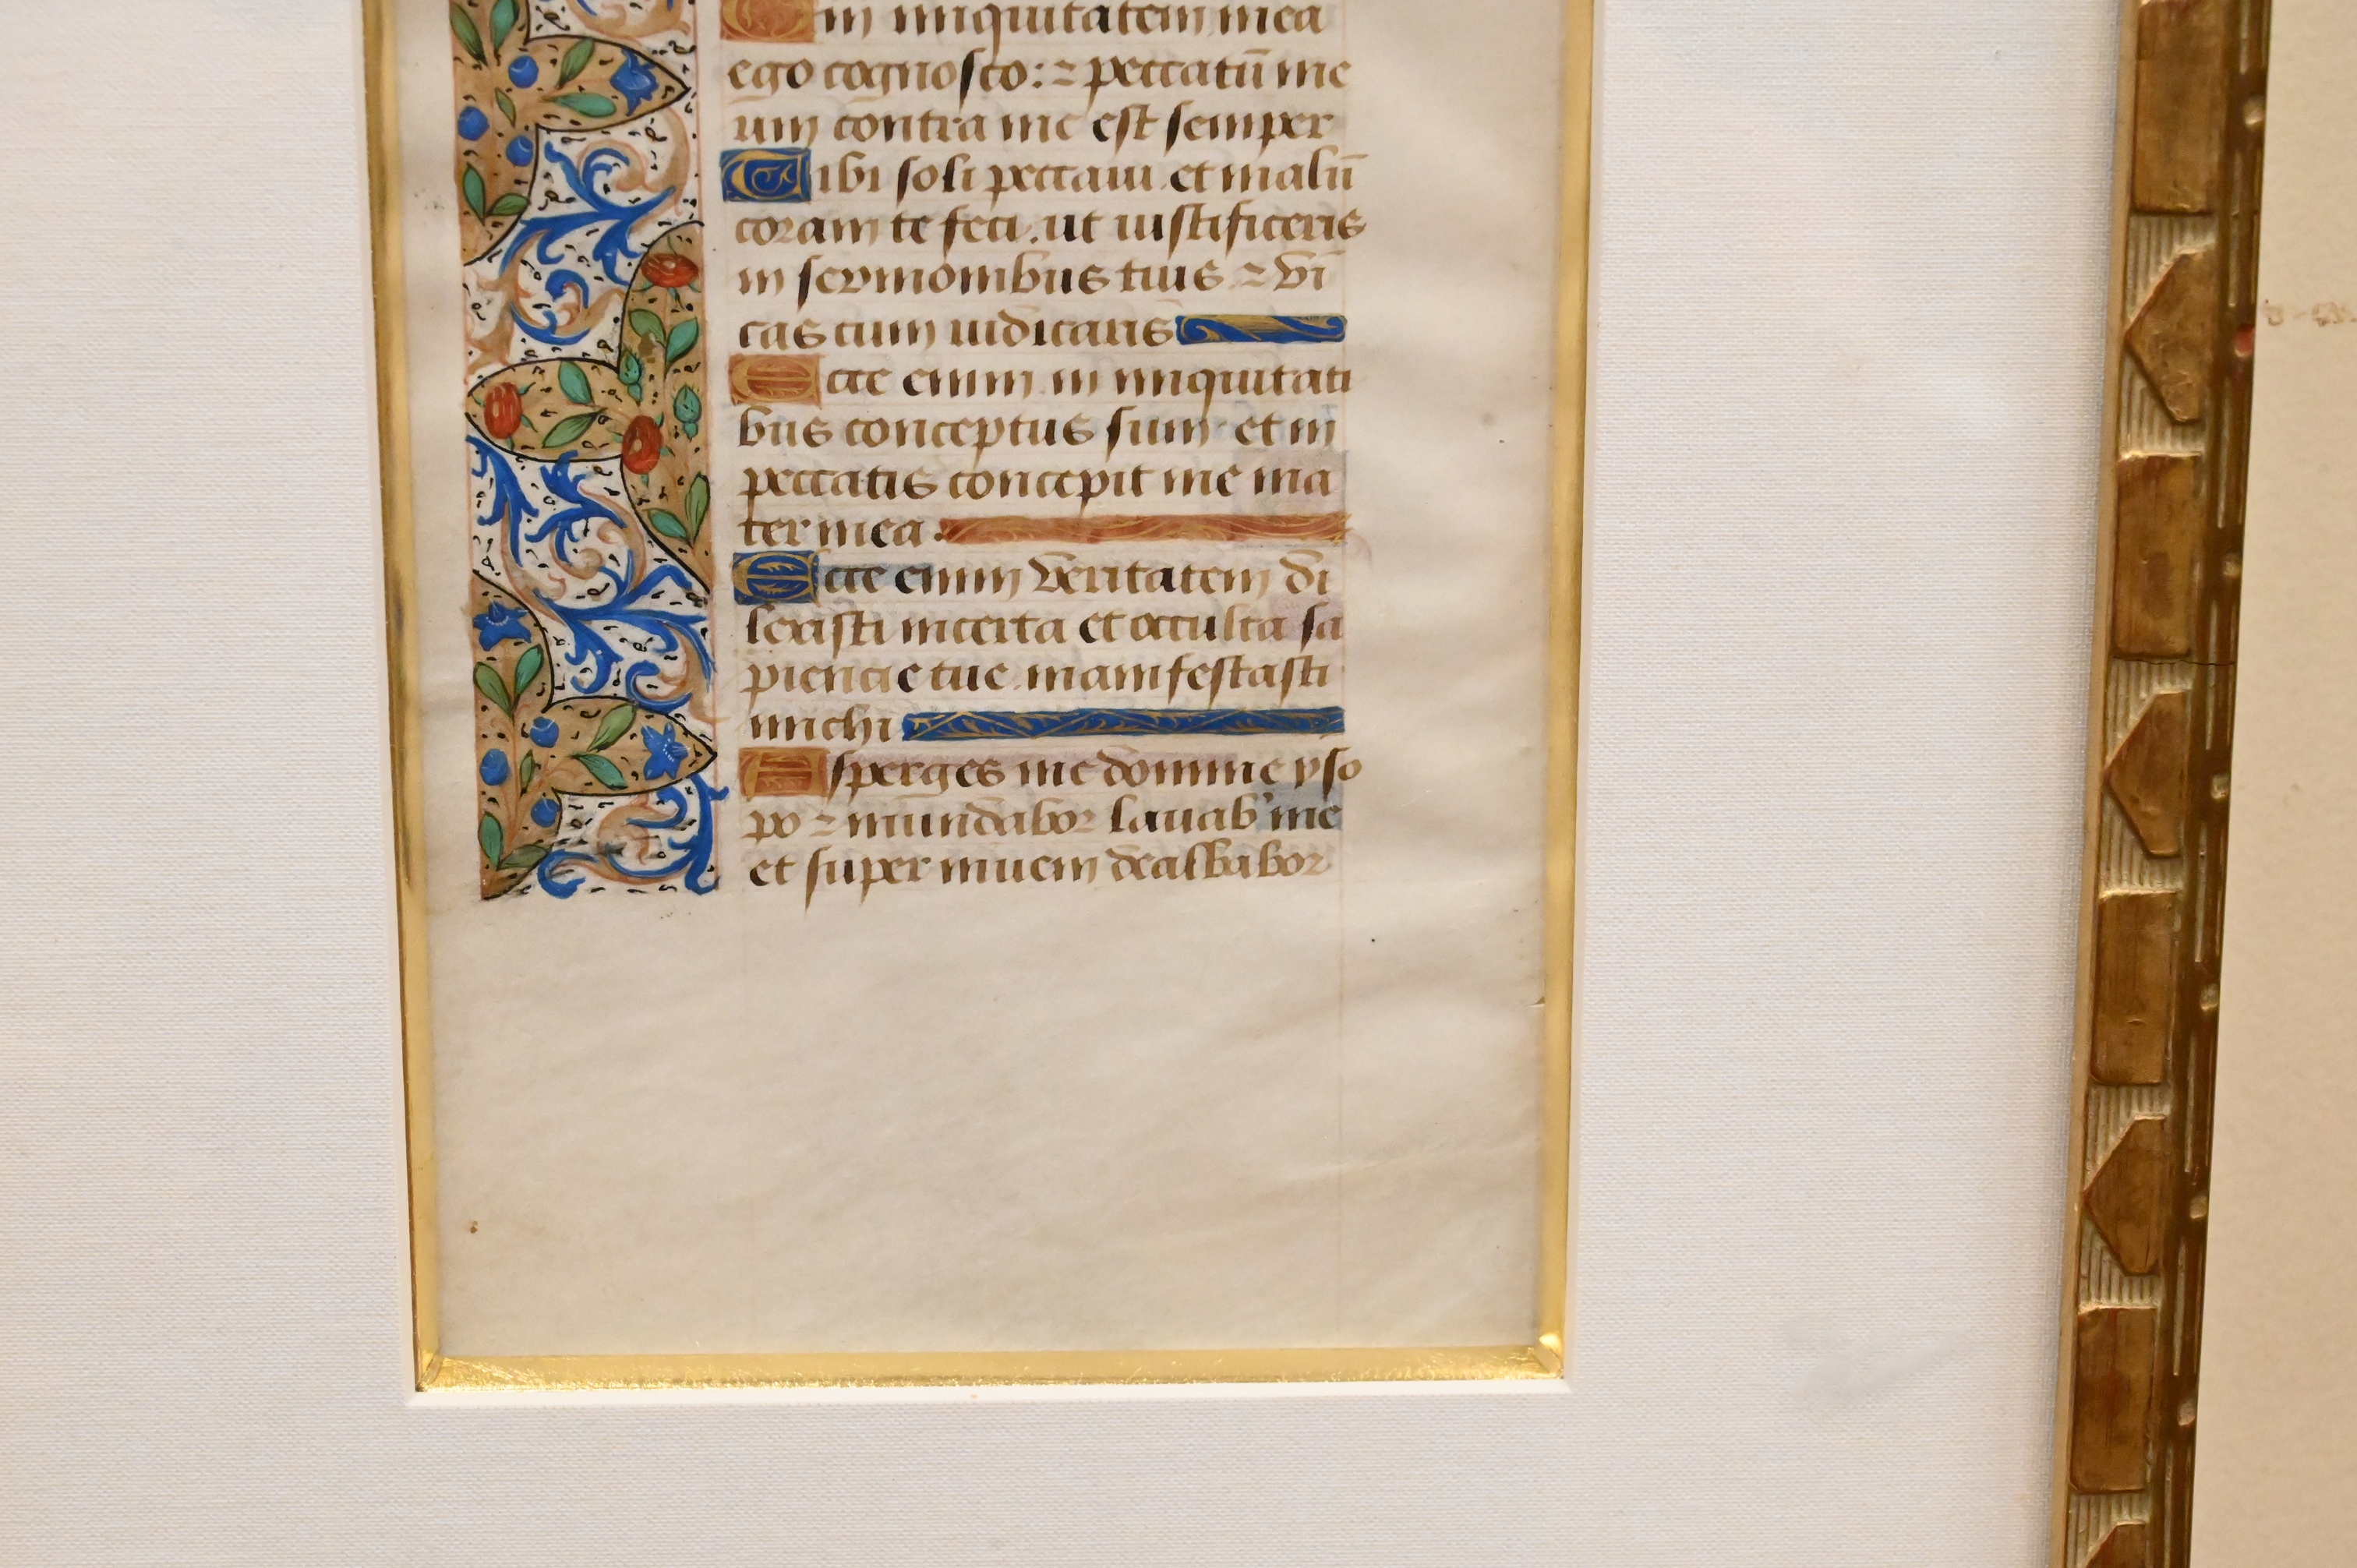 in iniquitatem mea
ego cognosco: ⁊ peccatū me
um contra me est semper
Tibi soli peccaui et malū
coram te feci. ut iustificeris
in sermonibus tuis ⁊ vī
cas cum iudicaris
Ecce enim in iniquitati
bus conceptus sum et in
peccatis concepit me ma
ter mea.
Ecce enim veritatem di
lexisti incerta et occulta sa
piencie tue manifestasti
michi
Asperges me domine yso
po ⁊ mundabor lauab' me
et super niuem dealbabor